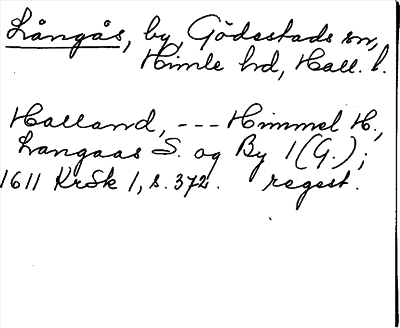 Långås, by, Gödestads sn,
Himle hd, Hall. l.
Halland, --- Himmel H.,
Langaas S. og By 1 (G.);
1611 KrSk 1, s. 372. regest.